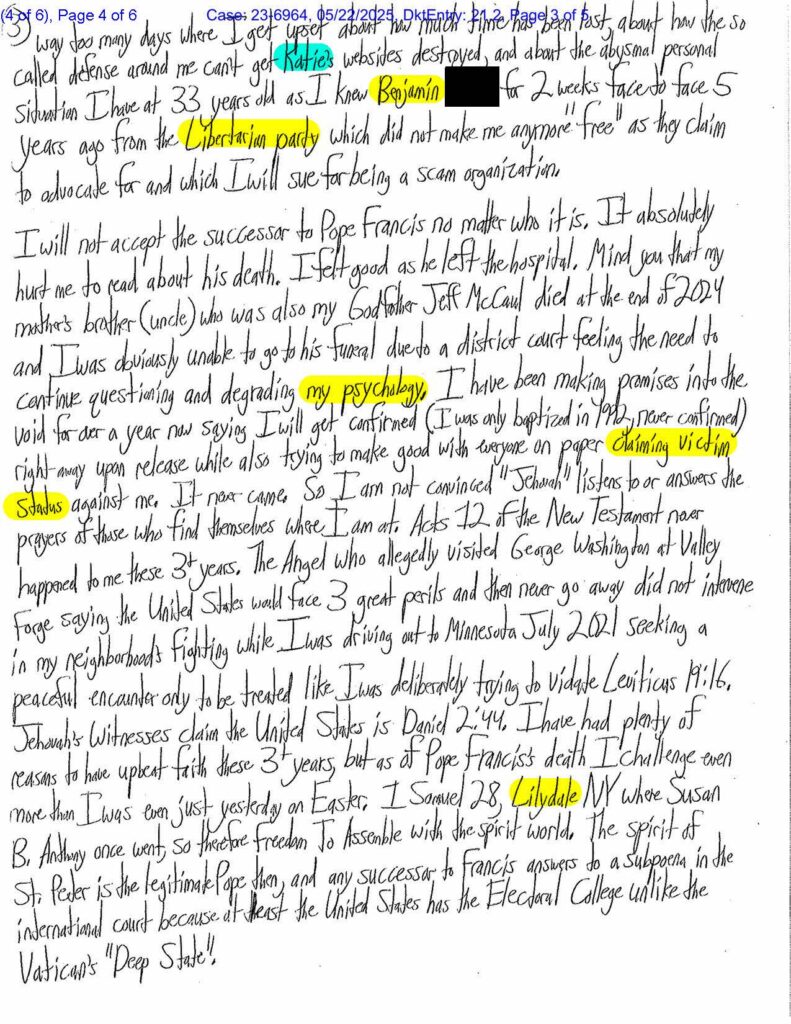 (4 of 6), Page 4 of 6 Case: 23-6964, 05/22/2025, DktEntry: 21.2, Page 3 of 5
3) way too many days where I get upset about how much time has been lost, about how the so
called defense around me can't get Katie's websides destroyed, and about the abysmal personal
situation I have at 33 years old as I knew Benjamin for 2 weeks face to face 5
years ago from the Libertarian party which did not make me anymore "free" as they claim
to advocate for and which I will sue for being a scam organization.
I will not accept the successor to Pope Francis no matter who it is. It absolutely
hurt me to read about his death. I felt good as he left the hospital. Mind you that my
mother's brother (uncle) who was also my Godfather Jeff McCaul died at the end of 2024
and I was obviously unable to go to his funeral due to a district court feeling the need to
continue questioning and degrading my psychology. I have been making promises into the
void for over a year now saying I will get confirmed (I was only baptized in 1992, never confirmed)
right away upon release while also trying to make good with everyone on paper claiming victim
status against me. It never came. So I am not convinced "Jehovah" listens to or answers the
prayers of those who find themselves where I am at. Acts 12 of the New Testament never
happened to me these 3+ years. The Angel who allegedly visited George Washington at Valley
Forge saying the United States would face 3 great perils and then never go away did not intervene
in my neighborhood's fighting while I was driving out to Minnesota July 2021 seeking a
peaceful encounter only to be treated like I was deliberately trying to violate Leviticus 19:16.
Jehovah's Witnesses claim the United States is Daniel 2:44. I have had plenty of
reasons to have upbeat faith these 3+ years, but as of Pope Francis's death I challenge even
more than I was even just yesterday on Easter. 1 Samuel 28, Lilydale NY where Susan
B. Anthony once went, so therefore Freedom To Assemble with the spirit world. The spirit of
St. Peter is the legitimate Pope then, and any successor to Francis answers to a subpoena in the
international court because at least the United States has the Electoral College unlike the
Vatican's "Deep State".